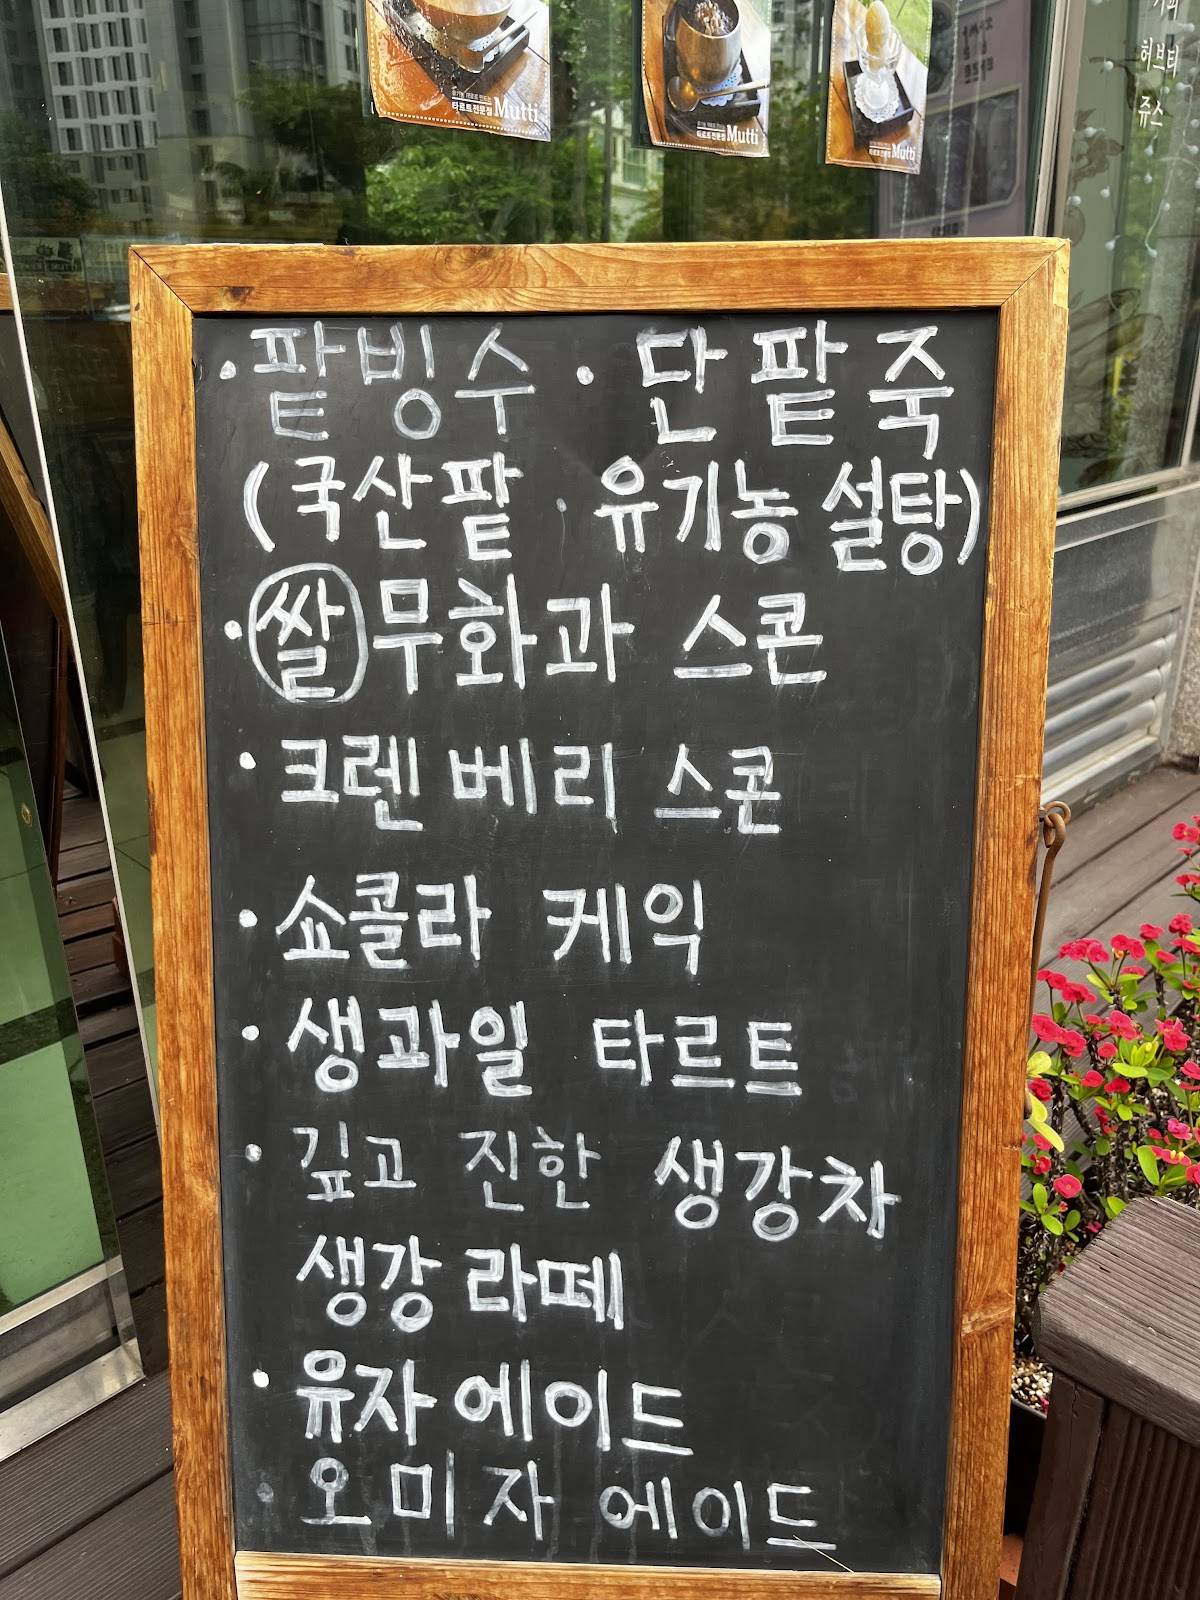 타르트전문점 Mutti
타르트전문점 Mutti
타르트전문점 Mutti
허브티
쥬스
· 팥빙수 · 단팥죽
(국산팥 · 유기농 설탕)
· 쌀 무화과 스콘
· 크렌베리 스콘
· 쇼콜라 케익
· 생과일 타르트
· 깊고 진한 생강차
생강라떼
· 유자에이드
· 오미자 에이드